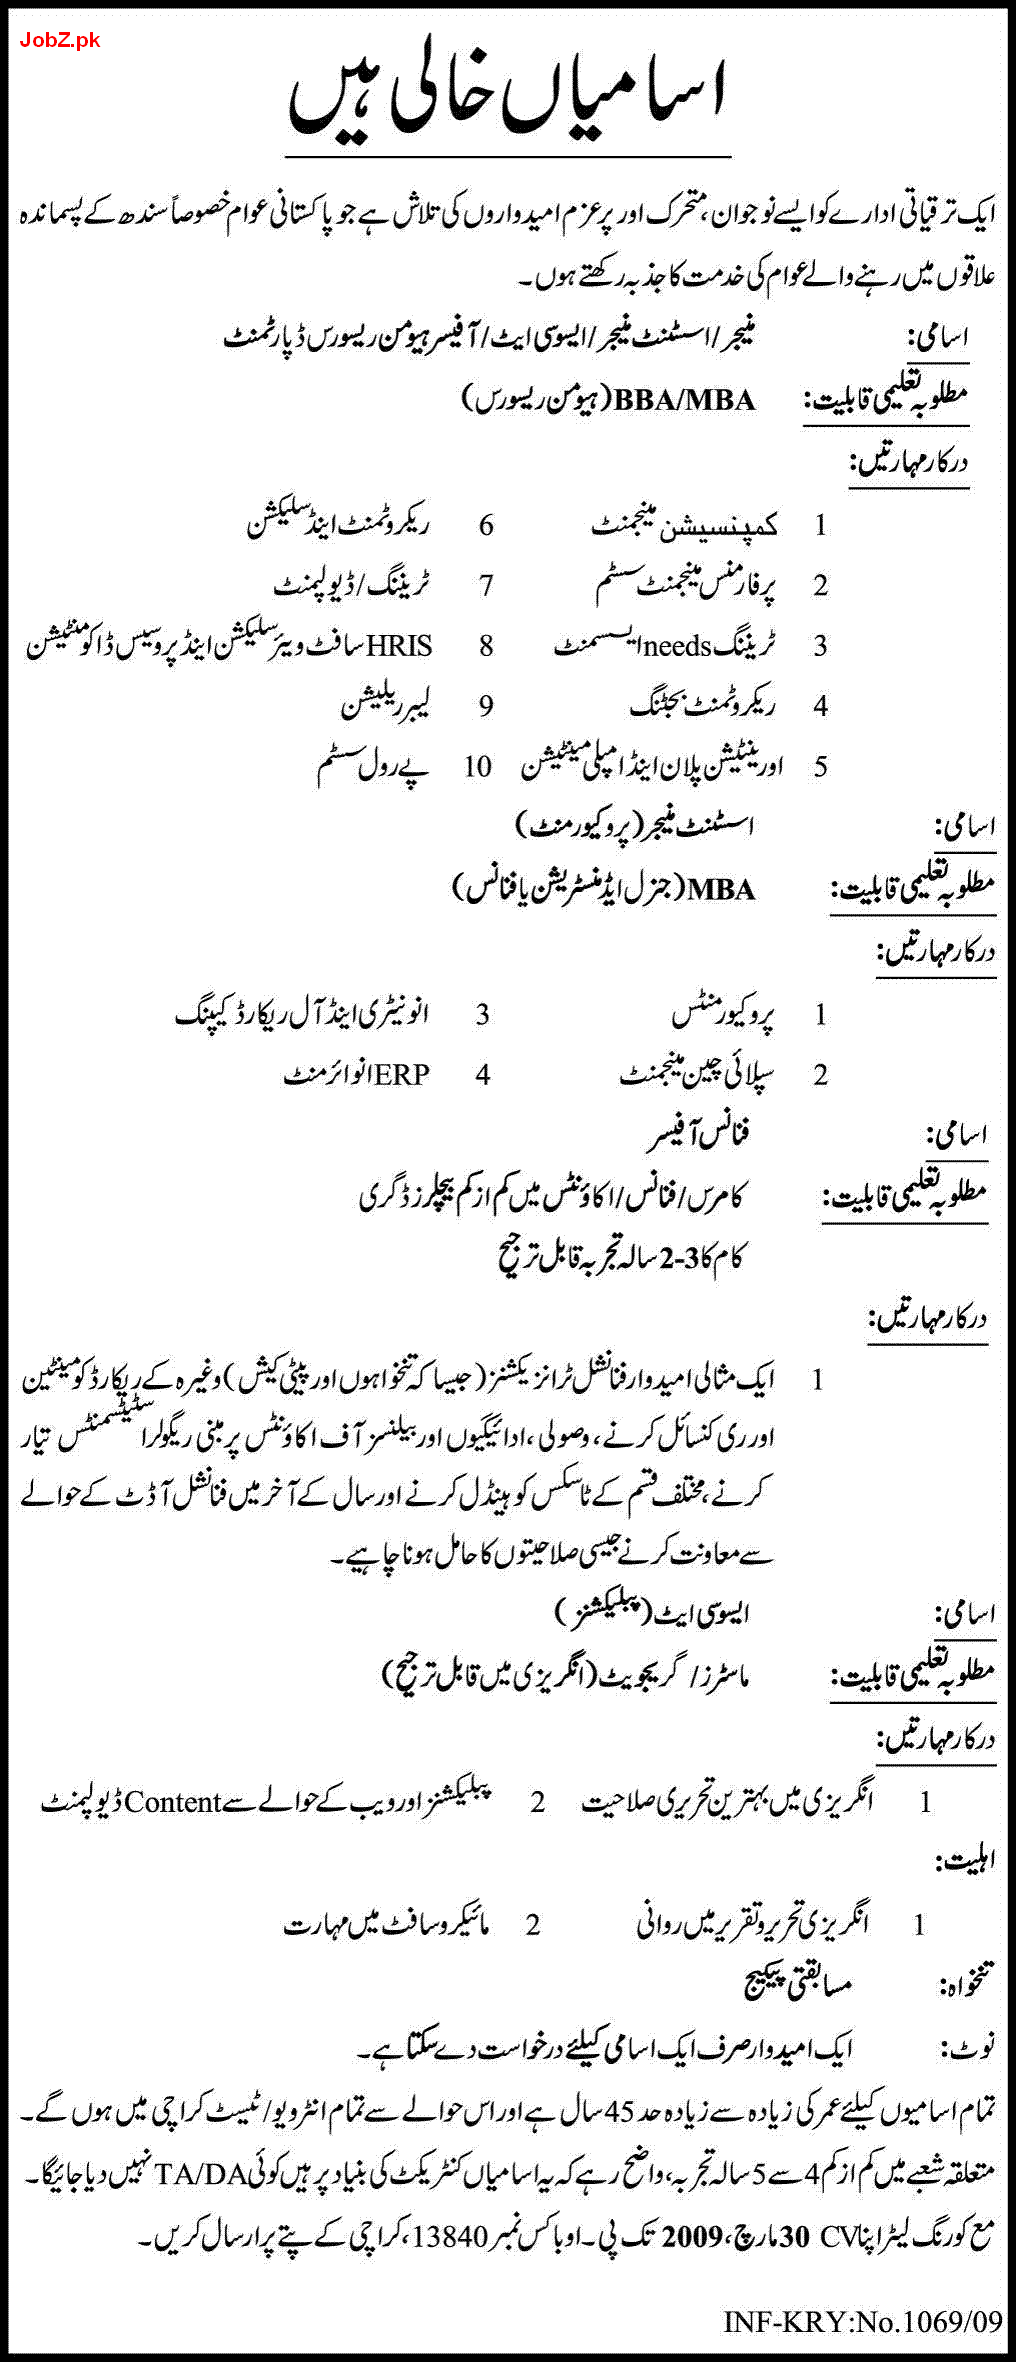 JobZ.pk
اسامیاں خالی ہیں
ایک ترقیاتی ادارے کو ایسے نوجوان، متحرک اور پرعزم امیدواروں کی تلاش ہے جو پاکستانی عوام خصوصاً سندھ کے پسماندہ
علاقوں میں رہنے والے عوام کی خدمت کا جذبہ رکھتے ہوں۔
اسامی: منیجر/اسسٹنٹ منیجر/ایسوسی ایٹ/آفیسر ہیومن ریسورس ڈپارٹمنٹ
مطلوبہ تعلیمی قابلیت: BBA/MBA (ہیومن ریسورس)
درکار مہارتیں:
1 کمپنسیشن مینجمنٹ 6 ریکروٹمنٹ اینڈ سلیکشن
2 پرفارمنس مینجمنٹ سسٹم 7 ٹریننگ/ڈیولپمنٹ
3 ٹریننگ needs ایسسمنٹ 8 HRIS سافٹ ویئر سلیکشن اینڈ پروسیس ڈاکومنٹیشن
4 ریکروٹمنٹ بجٹنگ 9 لیبر ریلیشن
5 اورینٹیشن پلان اینڈ امپلی مینٹیشن 10 پے رول سسٹم
اسامی: اسسٹنٹ منیجر (پروکیورمنٹ)
مطلوبہ تعلیمی قابلیت: MBA (جنرل ایڈمنسٹریشن یا فنانس)
درکار مہارتیں:
1 پروکیورمنٹس 3 انونیٹری اینڈ آل ریکارڈ کیپنگ
2 سپلائی چین مینجمنٹ 4 ERP انوائرمنٹ
اسامی: فنانس آفیسر
مطلوبہ تعلیمی قابلیت: کامرس/فنانس/اکاؤنٹس میں کم از کم بیچلرز ڈگری
کام کا 3-2 سالہ تجربہ قابل ترجیح
درکار مہارتیں:
1 ایک مثالی امیدوار فنانشل ٹرانزیکشنز (جیسا کہ تنخواہوں اور پیٹی کیش) وغیرہ کے ریکارڈ کو مینٹین
اور ری کنسائل کرنے، وصولی، ادائیگیوں اور بیلنسز آف اکاؤنٹس پر مبنی ریگولر اسٹیٹسمنٹس تیار
کرنے، مختلف قسم کے ٹاسکس کو ہینڈل کرنے اور سال کے آخر میں فنانشل آڈٹ کے حوالے
سے معاونت کرنے جیسی صلاحیتوں کا حامل ہونا چاہیے۔
اسامی: ایسوسی ایٹ (پبلیکشنز)
مطلوبہ تعلیمی قابلیت: ماسٹرز/ گریجویٹ (انگریزی میں قابل ترجیح)
درکار مہارتیں:
1 انگریزی میں بہترین تحریری صلاحیت 2 پبلیکشنز اور ویب کے حوالے سے Content ڈیولپمنٹ
اہلیت:
1 انگریزی تحریر و تقریر میں روانی 2 مائیکروسافٹ میں مہارت
تنخواہ: مسابقتی پیکیج
نوٹ: ایک امیدوار صرف ایک اسامی کیلئے درخواست دے سکتا ہے۔
تمام اسامیوں کیلئے عمر کی زیادہ سے زیادہ حد 45 سال ہے اور اس حوالے سے تمام انٹرویو/ٹیسٹ کراچی میں ہوں گے۔
متعلقہ شعبے میں کم از کم 4 سے 5 سالہ تجربہ، واضح رہے کہ یہ اسامیاں کنٹریکٹ کی بنیاد پر ہیں کوئی TA/DA نہیں دیا جائیگا۔
مع کورنگ لیٹر اپنا CV 30 مارچ، 2009 تک پی۔او باکس نمبر 13840، کراچی کے پتے پر ارسال کریں۔
INF-KRY:No.1069/09